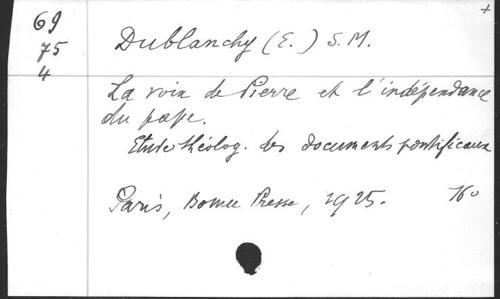 69
75
4
+
Dublanchy (E.) S.M.
La voix de Pierre et l'indépendance
du pape.
Etude théolog. des documents pontificaux
Paris, Bonne Presse, 1925. 16°